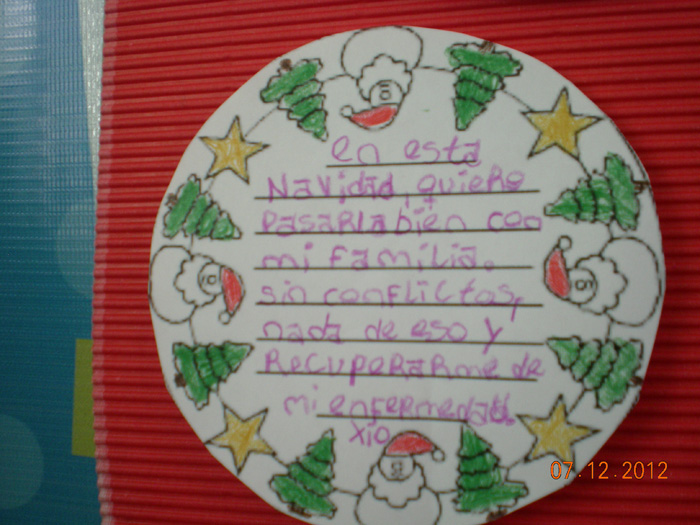 en esta
Navidad, quiero
pasarla bien con
mi familia.
sin conflictos,
nada de eso y
Recuperarme de
mi enfermedad.
Xio
07.12.2012